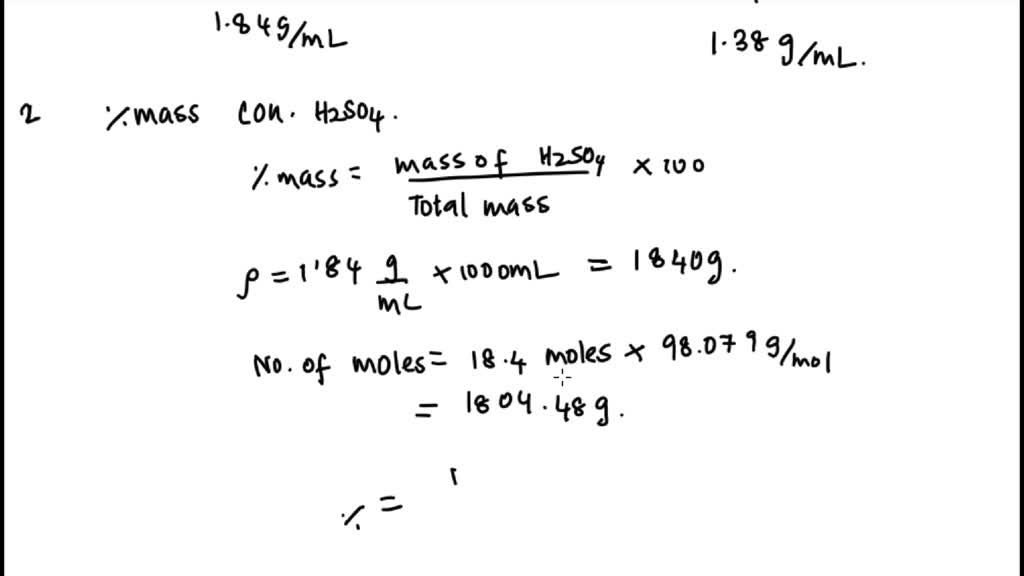 1.84g/mL 1.38 g/mL.
2 % mass con. H2SO4.
% mass = mass of H2SO4 × 100
Total mass
ρ = 1'84 g × 1000mL = 1840g.
mL
No. of moles = 18.4 moles × 98.079 g/mol
= 1804.48g.
% =